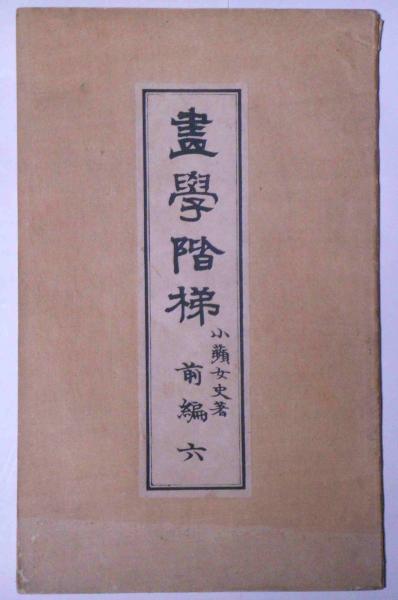 畫學階梯
小蘋女史著
前編 六